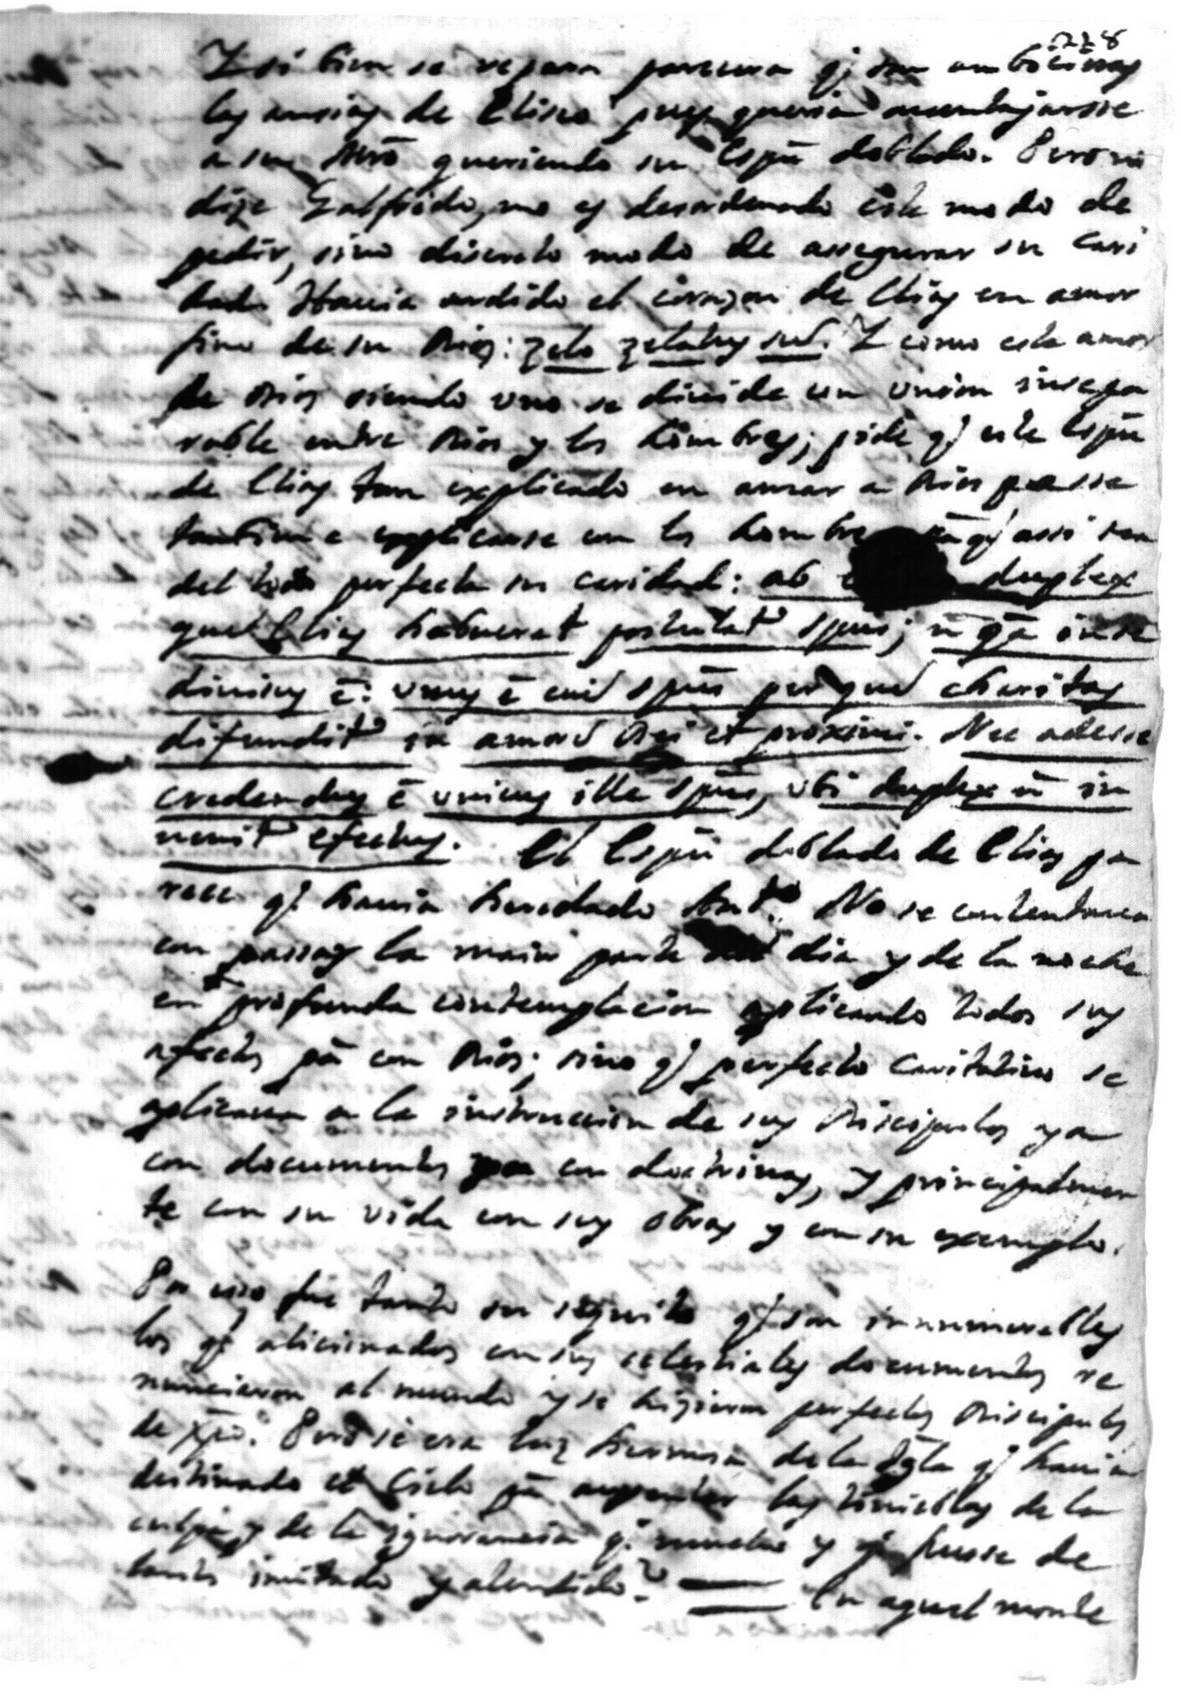 228
Y si bien se repara parecera q̃ son ambiciosas
las ansias de Eliseo pues queria aventajarsse
a su Mrõ queriendo su Espũ doblado. Pero no
dize Galfrido, no es desordenado este modo de
pedir, sino discreto modo de assegurar su cari
dad. Havia ardido el corazon de Elias en amor
fino de su Dios: zelo zelatus sum. Y como este amor
de Dios siendo uno se divide con union insepa
rable entre Dios y los hombres; pide q̃ este Espũ
de Elias tan explicado en amar a Dios passe
tambien a explicarse con los hombres pã q̃ assi sea
del todo perfecta su caridad: ab duplex
que Elias habuerat postulatr spũs; ñ qã in se
divisus ẽ: unus ẽ enim spũs per quem charitas
difunditr in amorem Dei et proximi. Nec adesse
credendus ẽ unicus ille spũs, ubi duplex ñ in
venitr efectus. El Espũ doblado de Elias pa
rece q̃ havia heredado Antº. No se contentava
con passar la maior parte del dia y de la noche
en profunda contemplacion aplicando todos sus
afectos pã con Dios; sino q̃ perfecto caritativo se
aplicava a la instruccion de sus Discipulos ya
con documentos ya con doctrinas, y principalmen
te con su vida con sus obras y con su exemplo.
Por esso fue tanto su sequito q̃ son innumerables
los q̃ aficionados en sus celestiales documentos re
nunciaron al mundo y se hizieron perfectos Discipulos
de Xpõ. Pero si era luz hermosa de la Igla q̃ havia
destinado el Cielo pã las tinieblas de la
culpa y de la ignorancia q̃ mucho y q̃ fuesse de
tantos imitado y atendido? En aquel monte